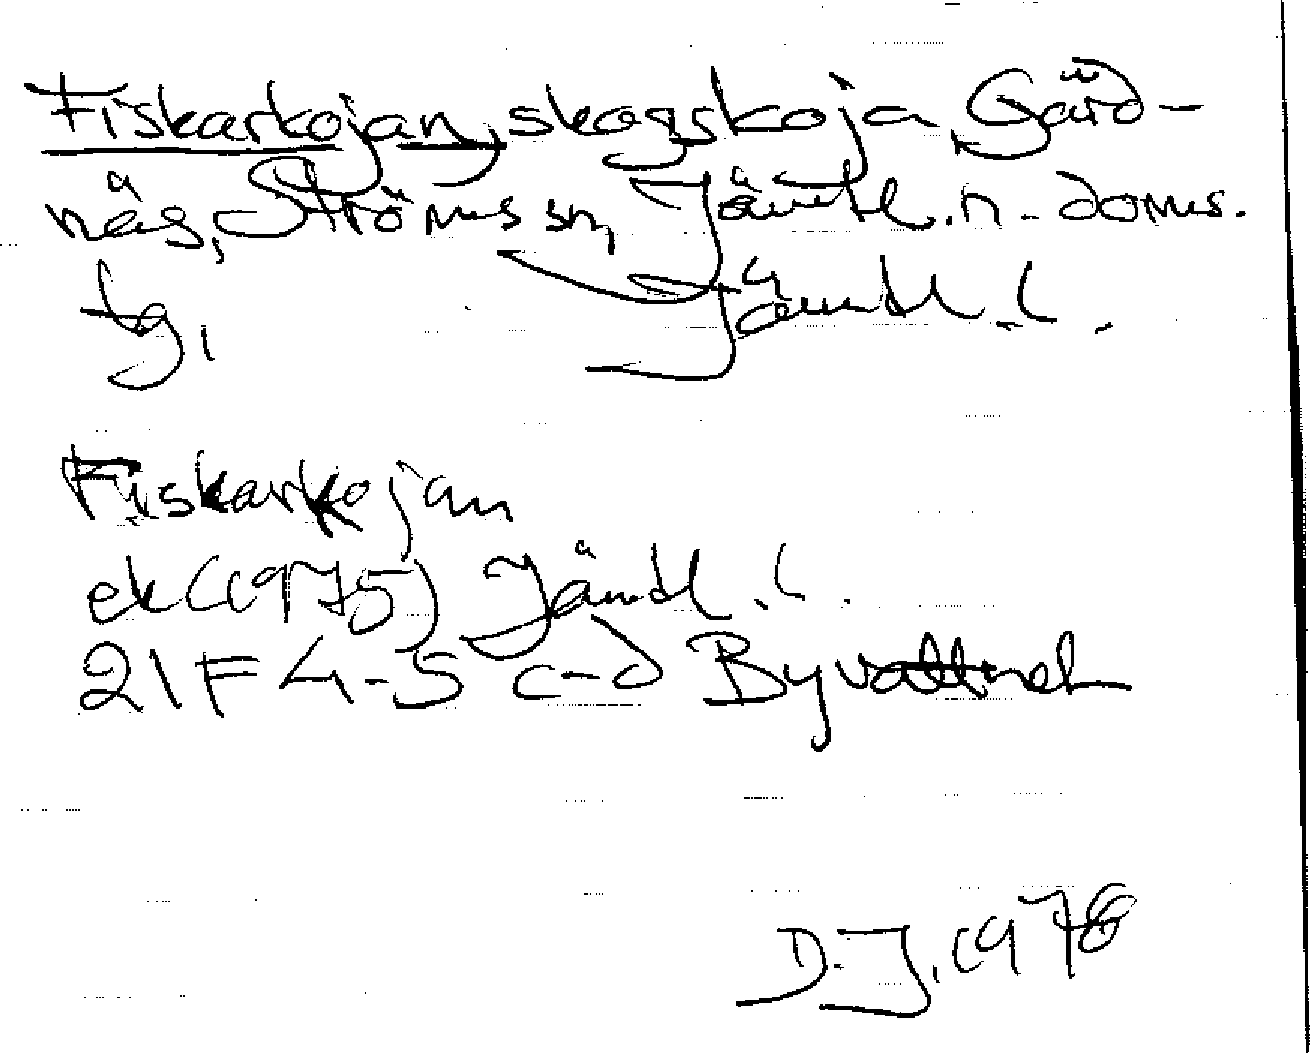 Fiskarkojan, skogskoja, Gärd-
näs, Ströms sn, Jämtl. n. doms.
tg,          Jämtl. l.
Fiskarkojan
ek (1975) Jämtl. l.
21F 4-5 c-d Byvattnet
D.J. 1978